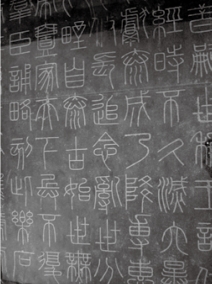 昔嗣世稱王討
經時不久滅六暴
獻泰成乃降專惠
長追念亂世分
野自泰古始世無
壹家天下兵不復
羣臣誦略刻此樂石